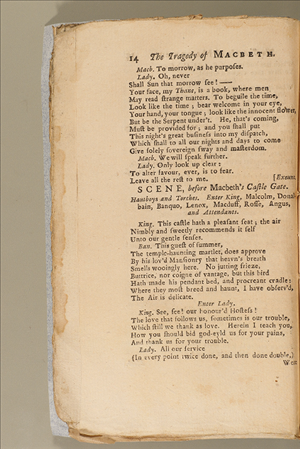 14 The Tragedy of MACBETH.
Macb. To morrow, as he purposes.
Lady. Oh, never
Shall Sun that morrow see! —
Your face, my Thane, is a book, where men
May read strange matters. To beguile the time,
Look like the time; bear welcome in your eye,
Your hand, your tongue; look like the innocent flower,
But be the Serpent under't. He, that's coming,
Must be provided for; and you shall put
This night's great business into my dispatch,
Which shall to all our nights and days to come
Give solely sovereign sway and masterdom.
Macb. We will speak further.
Lady. Only look up clear:
To alter favour, ever, is to fear.
Leave all the rest to me. [Exeunt.
SCENE, before Macbeth's Castle Gate.
Hautboys and Torches. Enter King, Malcolm, Donal-
bain, Banquo, Lenox, Macduff, Rosse, Angus,
and Attendants.
King. This castle hath a pleasant seat; the air
Nimbly and sweetly recommends it self
Unto our gentle senses.
Ban. This guest of summer,
The temple-haunting martlet, does approve
By his lov'd Mansonry that heav'n's breath
Smells wooingly here. No jutting frieze,
Buttrice, nor coigne of vantage, but this bird
Hath made his pendant bed, and procreant cradle:
Where they most breed and haunt, I have observ'd,
The Air is delicate.
Enter Lady.
King. See, see! our honour'd Hostess!
The love that follows us, sometimes is our trouble,
Which still we thank as love. Herein I teach you,
How you should bid god-eyld us for your pains,
And thank us for your trouble.
Lady. All our service
(In every point twice done, and then done double,)